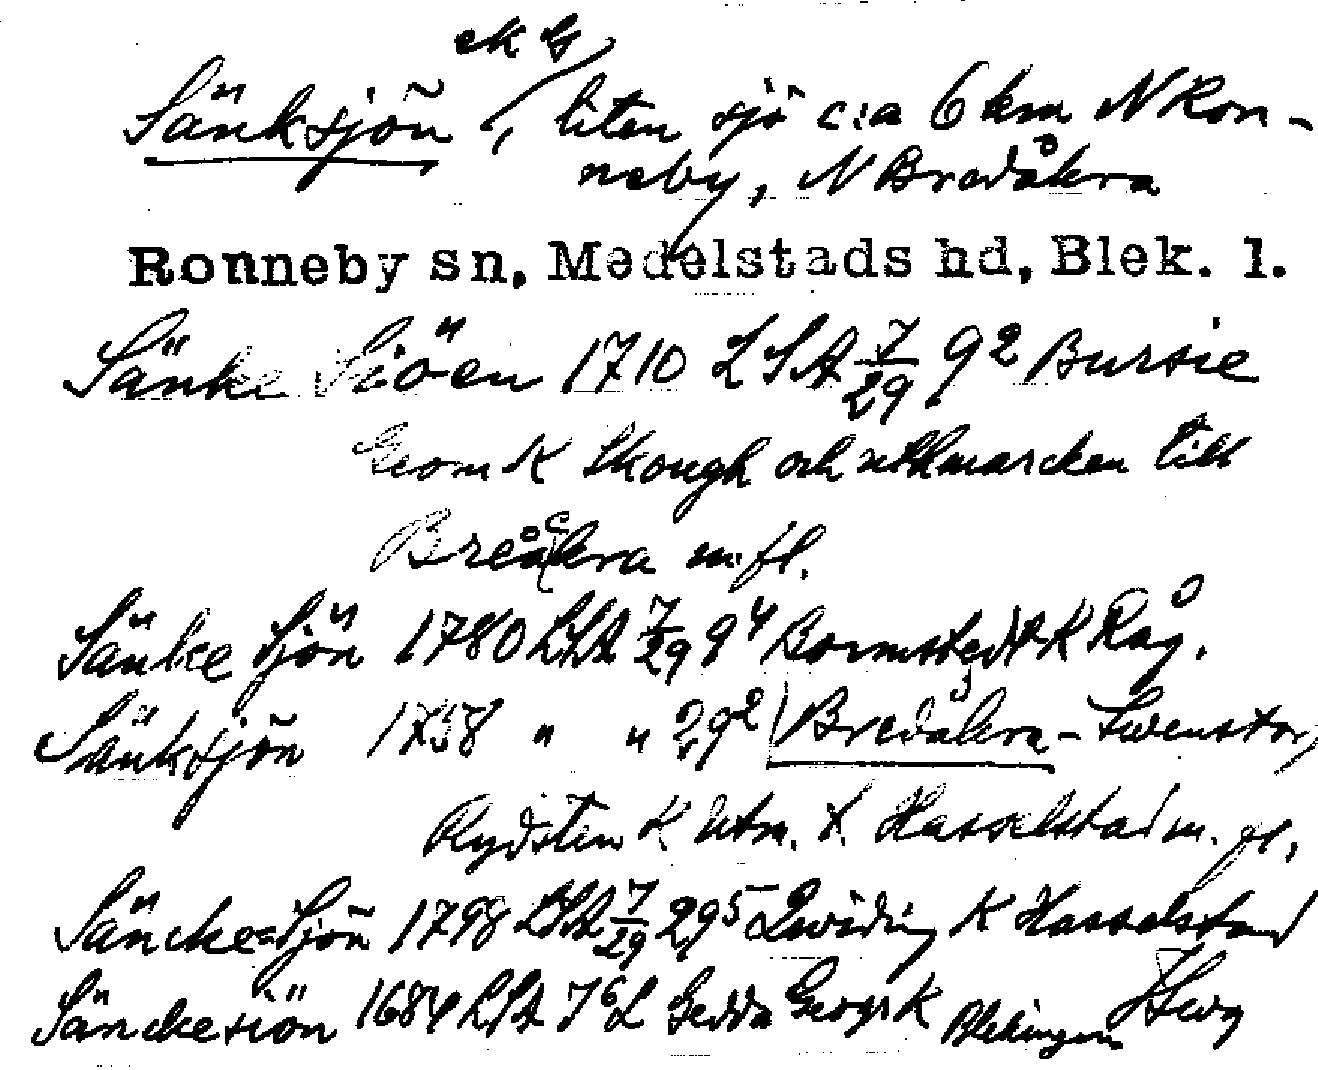 ek G
Sänksjön, liten sjö c:a 6 km N Ron-
neby, N Bredåkra
Ronneby sn, Medelstads hd, Blek. l.
Sänke Siöen 1710 LSA 7/29 9² Bursie
Geom K Skough och uthmarcken till
Breåkra m.fl.
Sänke Sjön 1780 LSA 7/29 9⁴ Bormstedt K Råg.
Sänksjön 1758 " " 29² Bredåkra - Swenstorp
Rydsten K Utm. t. Hasselstad m. fl.
Säncke=Sjön 1798 LSA 7/29 29⁵ Qwiding K Hasselstad
Sänckesiön 1684 LSA 7⁶ L Gedda Geogr K Blekingen